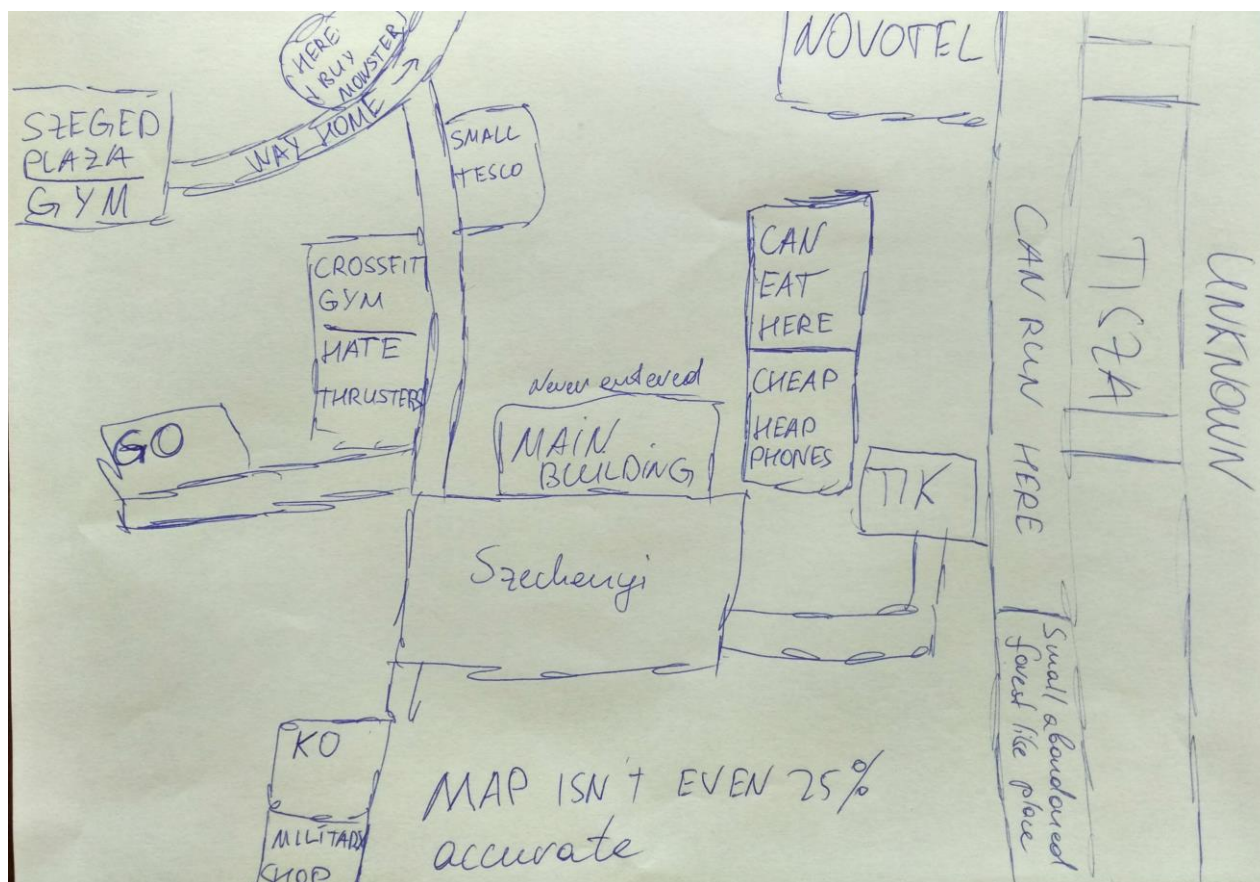 HERE
BUY
MONSTER
SZEGED
PLAZA
GYM
WAY HOME
SMALL
TESCO
NOVOTEL
CROSSFIT
GYM
HATE
THRUSTERS
GO
Never entered
MAIN
BUILDING
CAN
EAT
HERE
CHEAP
HEAP
PHONES
TIK
CAN RUN HERE
TISZA
UNKNOWN
Szechenyi
Small abandoned
forest like place
KO
MILITARY
SHOP
MAP ISN'T EVEN 25%
accurate